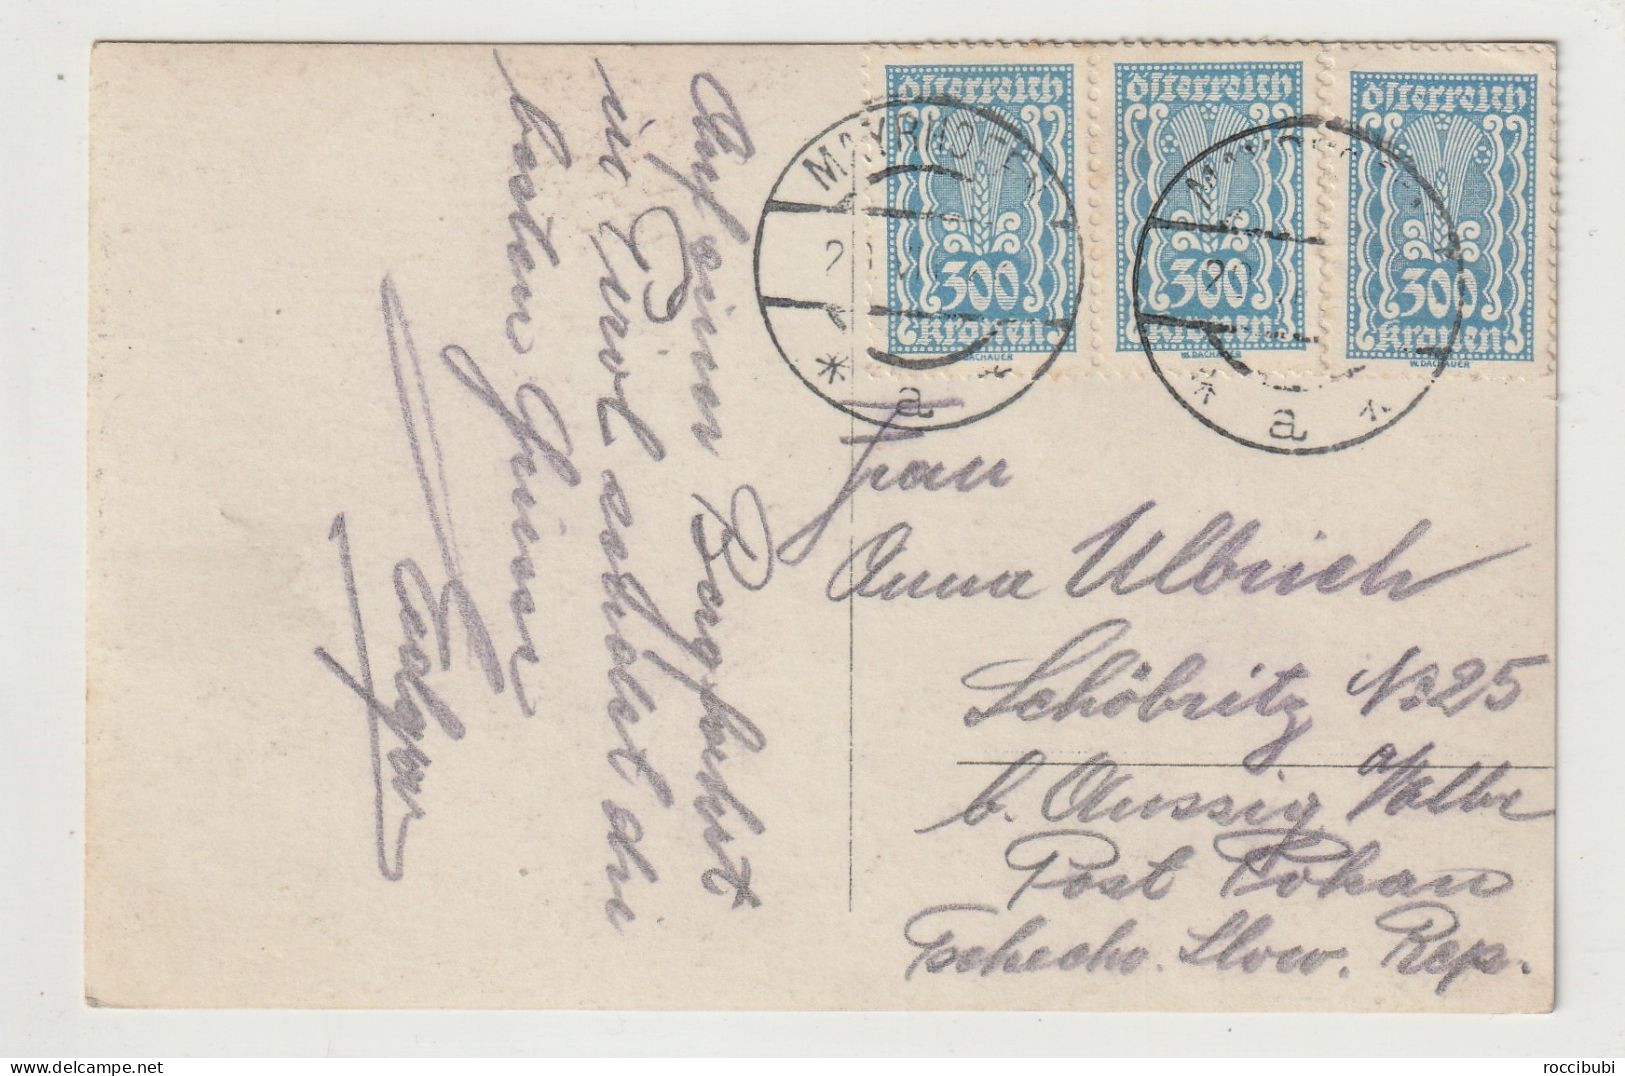 Österreich Österreich Österreich
300 300 300
Kronen Kronen Kronen
W. DACHAUER W. DACHAUER W. DACHAUER
MAYRHOFEN
a
MAYRHOFEN
20
a
Auf einer Bergfahrt
in Tirol sendet die
besten Grüsse
Frau
Anna Ulbrich
Schöbritz Nr 25
b. Aussig a/Elbe
Post Pokau
Tschecho. Slow. Rep.
roccibubi